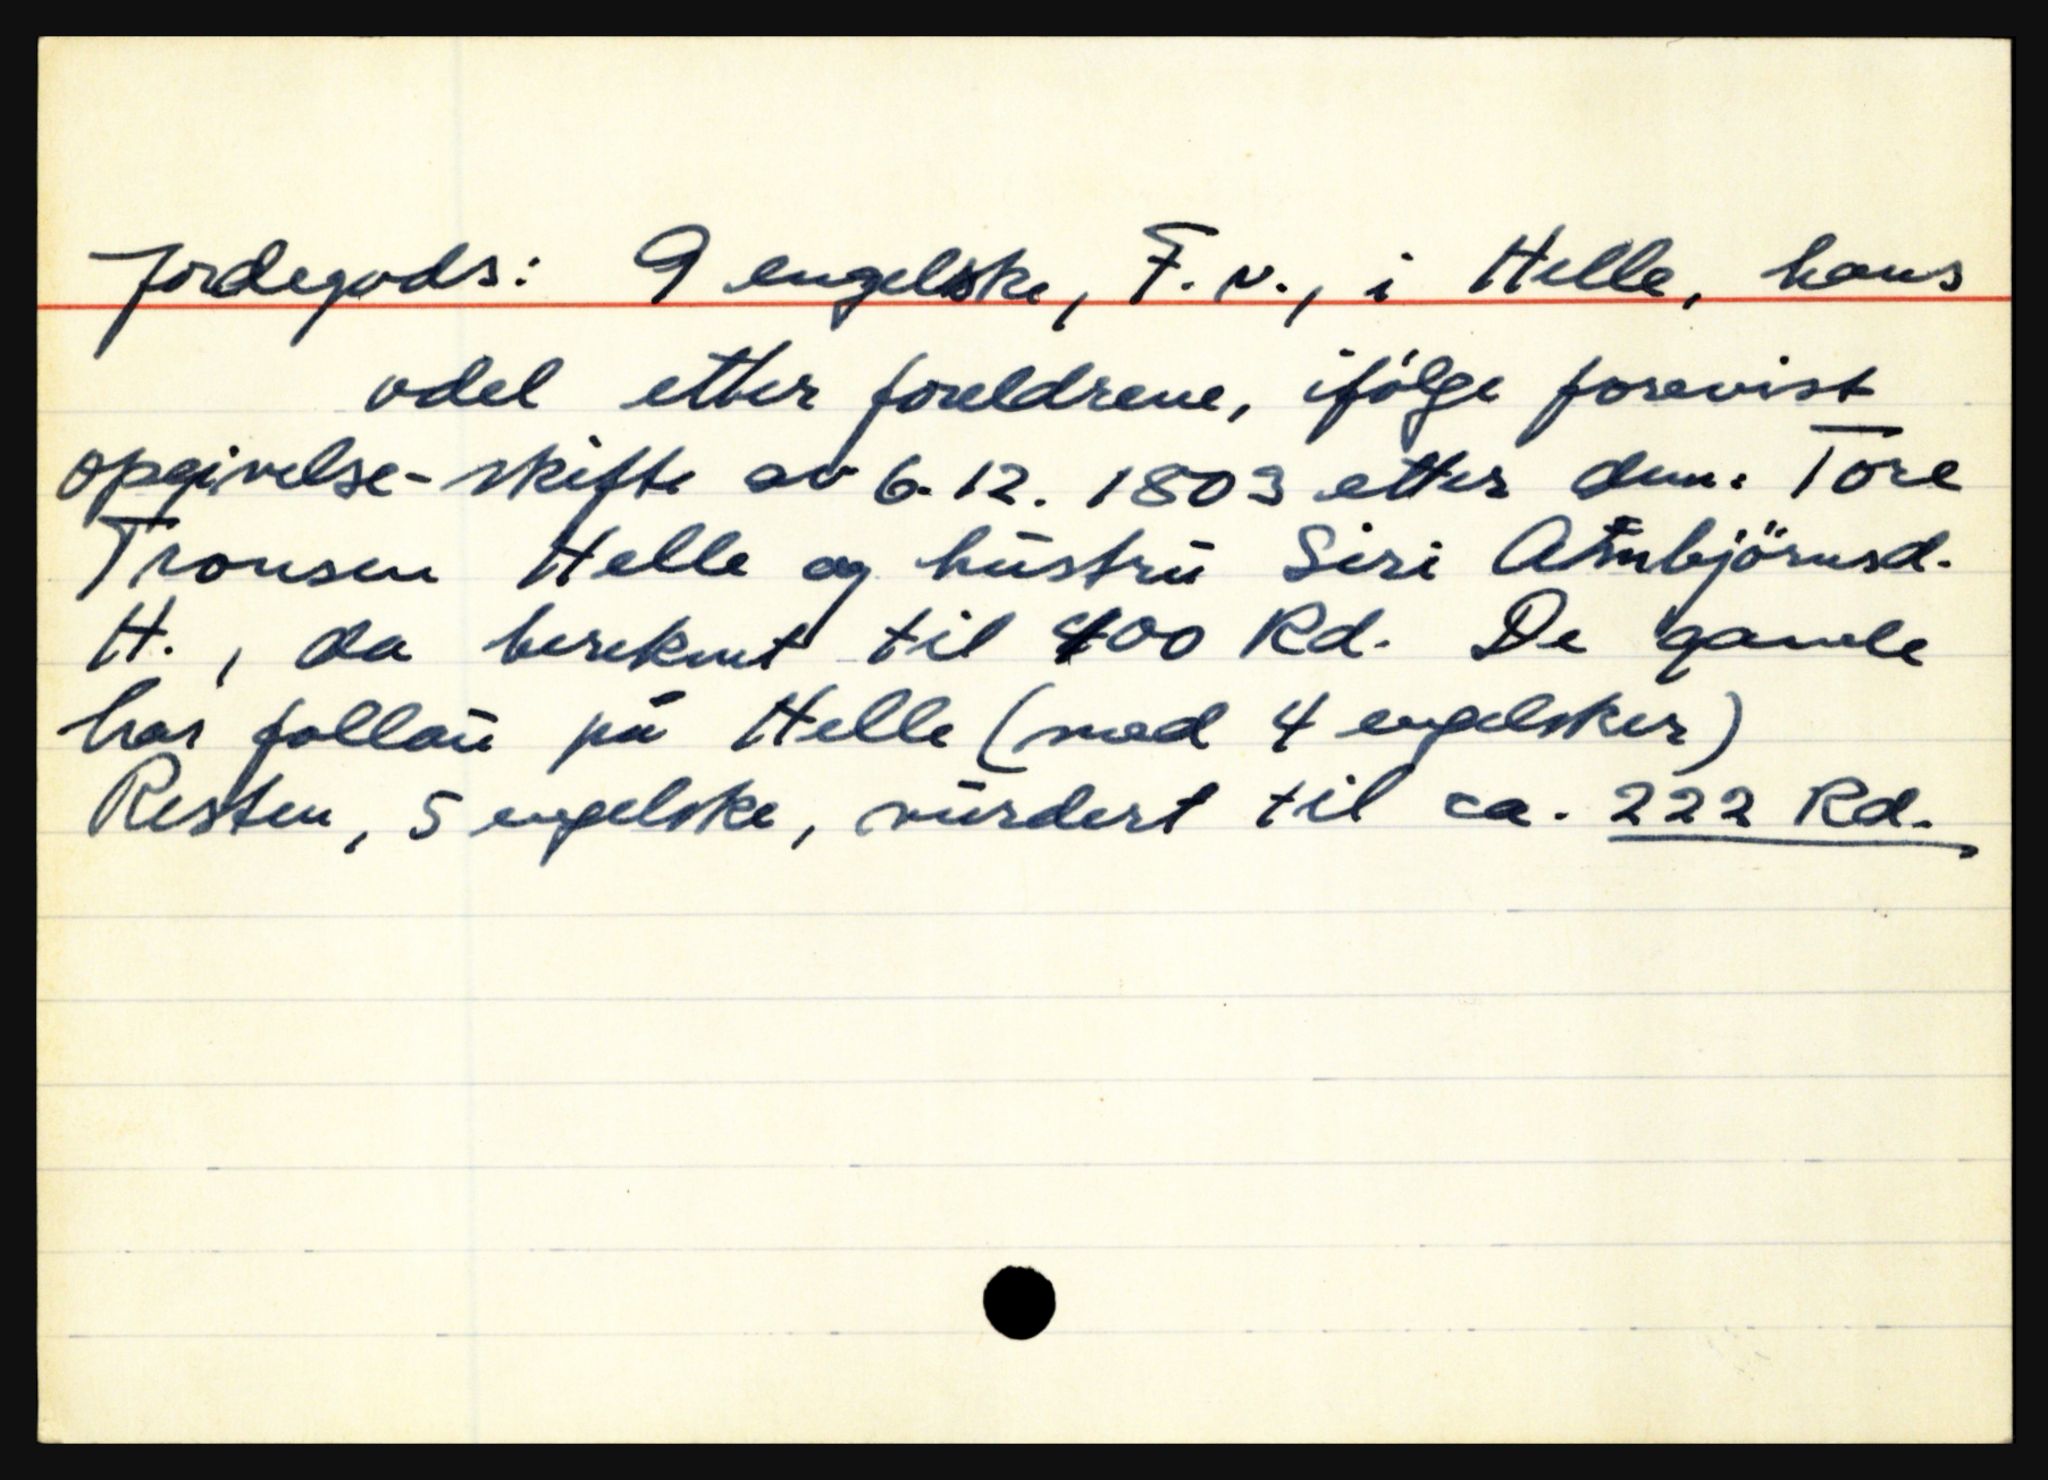 Jordegods: 9 engelske, F.v., i Helle, hans
odel etter foreldrene, ifölge forevist
opgivelse-skifte av 6.12.1803 etter dem: Tore
Tronsen Helle og hústrú Siri Arnbjörnsd.
H., da bereknet til 400 Rd. De gamle
har follaú på Helle (med 4 engelsker)
Resten, 5 engelske, vúrdert til ca. 222 Rd.